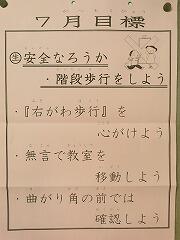 7月目標
生安全なろうか
・階段歩行をしよう
・『右がわ歩行』を
心がけよう
・無言で教室を
移動しよう
・曲がり角の前では
確認しよう